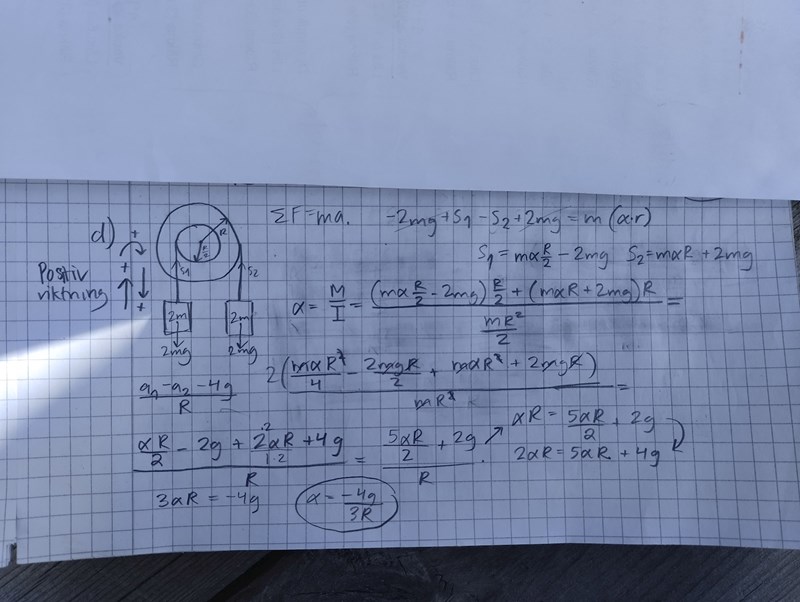 d)
Positiv
riktning
+
+
+
R
R/2
S1
S2
2m
2m
2mg
2mg
ΣF=ma. -2mg+S1-S2+2mg=m(α·r)
S1=mαR/2-2mg S2=mαR+2mg
α=M/I=((mαR/2-2mg)R/2+(mαR+2mg)R)/(mR²/2)=
2(mαR²/4-2mgR/2+mαR²+2mgR)/mR²=
(a1-a2-4g)/R
(αR/2-2g+2·2αR/1·2+4g)/R=(5αR/2+2g)/R.
αR=5αR/2+2g
2αR=5αR+4g
3αR=-4g α=-4g/3R